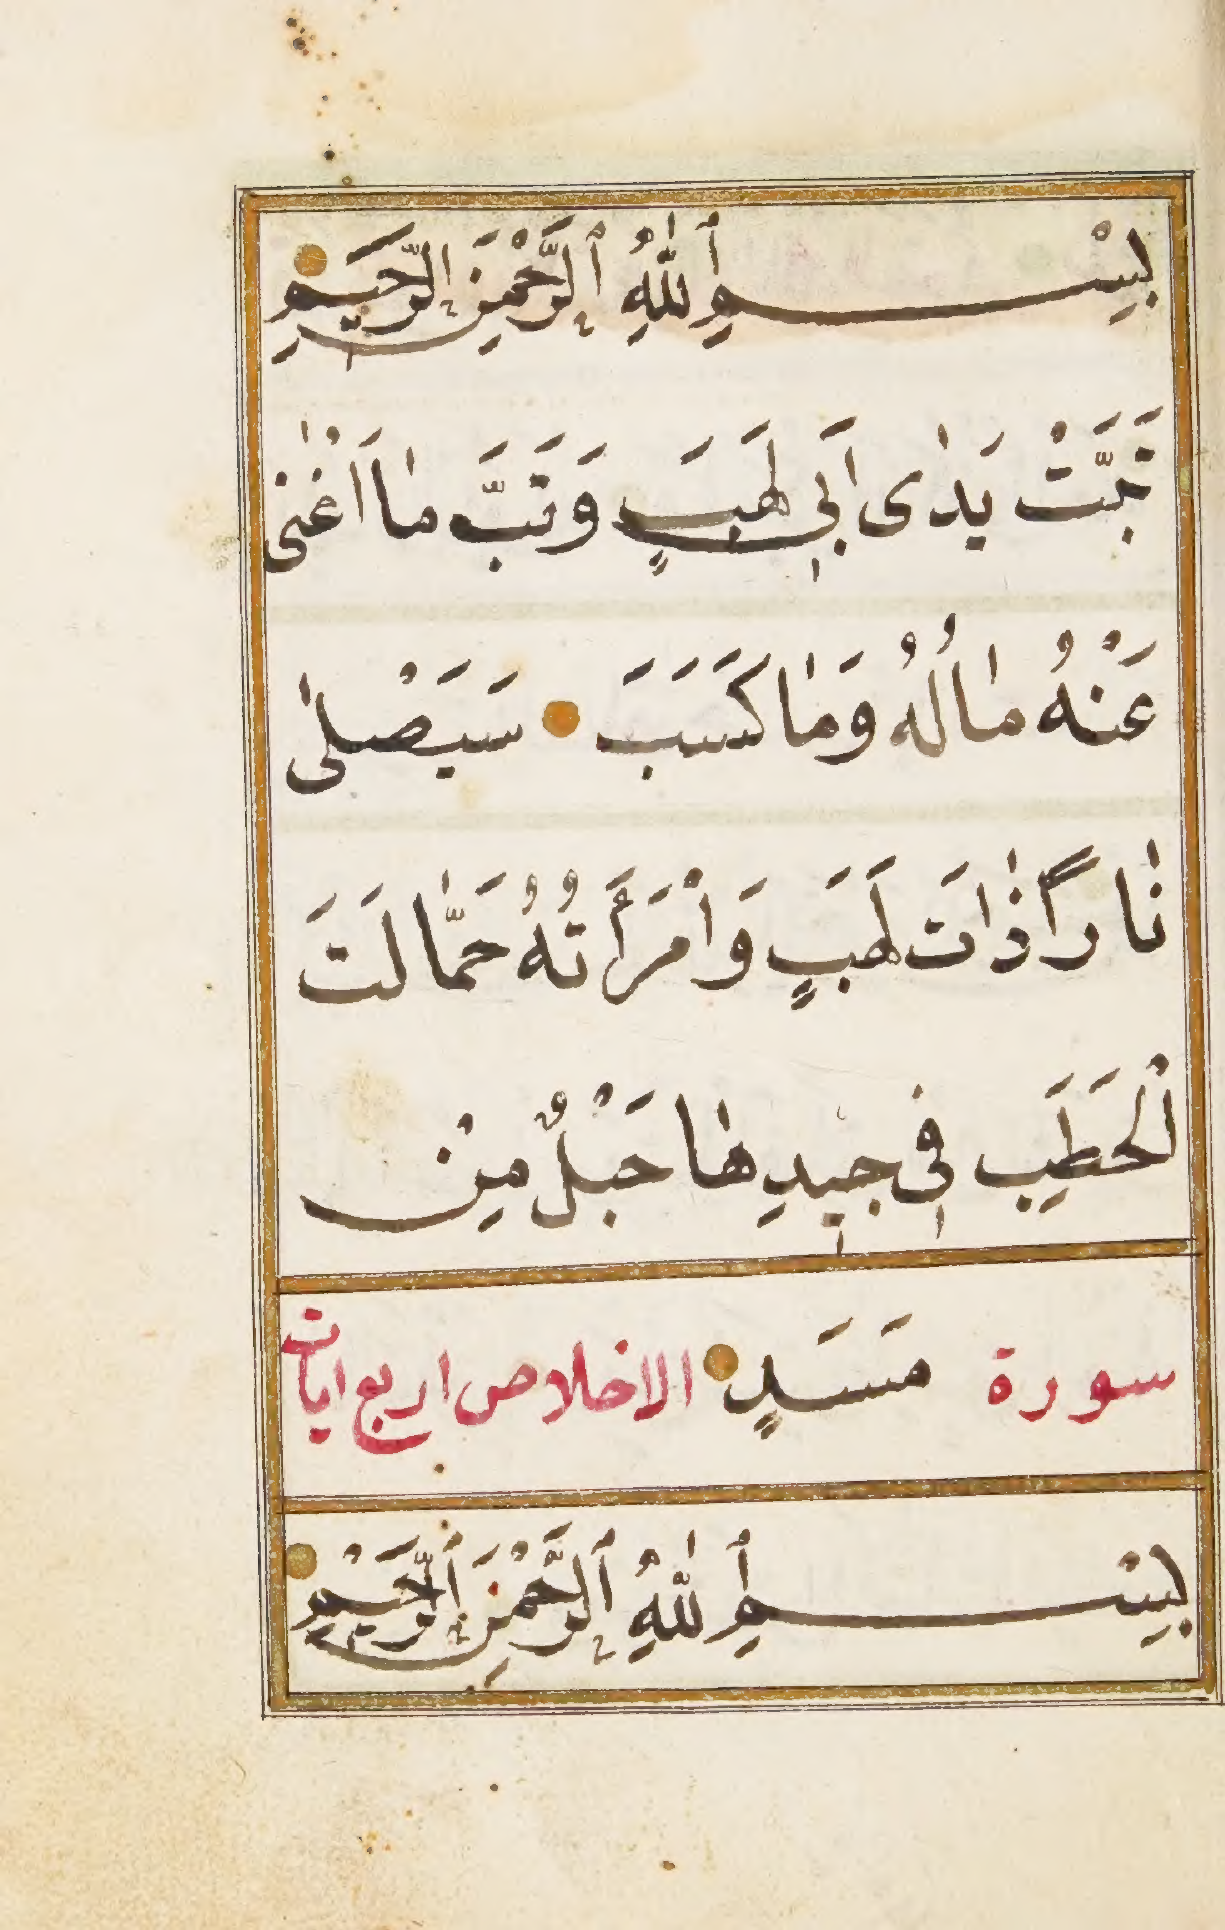 بِسْمِ ٱللّٰهِ ٱلرَّحْمٰنِ ٱلرَّحِيمِ
تَبَّتْ يَدٰى اَبِي لَهَبٍ وَتَبَّ مٰا اَغْنٰى
عَنْهُ مٰالُهُ وَمٰا كَسَبَ سَيَصْلٰى
نٰاراً ذٰاتَ لَهَبٍ وَاْمْرَأَتُهُ حَمّٰالَتَ
اْلحَطَبِ فِى جِيدِهٰا حَبْلٌ مِنْ
سورة مَسَدٍ الاخلاص اربع ايات
بِسْمِ ٱللّٰهِ ٱلرَّحْمٰنِ ٱلرَّحِيمِ